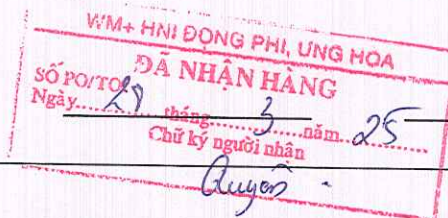 WM+ HNI ĐỘNG PHI, UNG HOA
ĐÃ NHẬN HÀNG
SỐ PO/TO
Ngày 28 tháng 3 năm 25
Chữ ký người nhận
Quyên